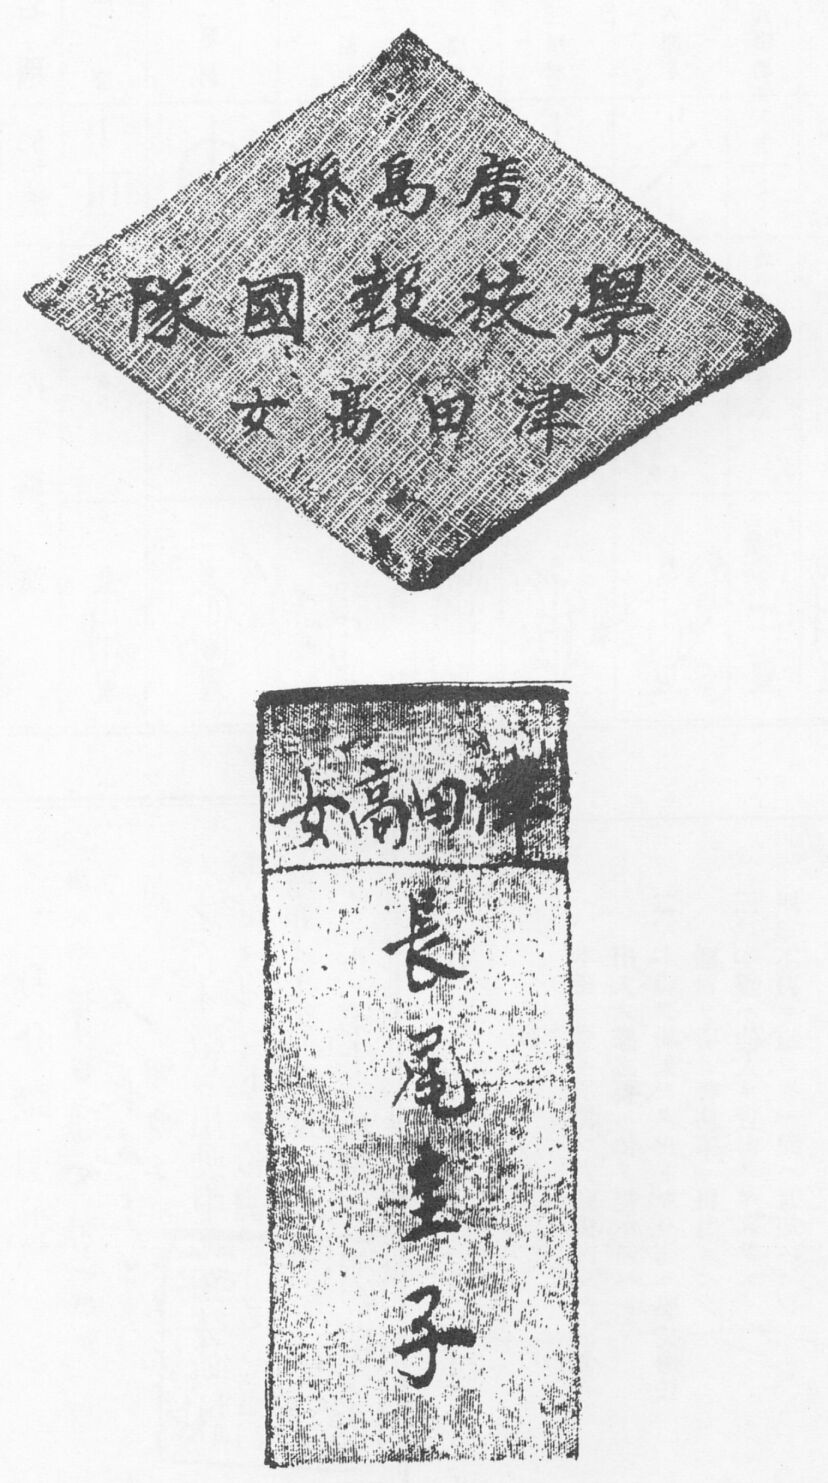 廣島縣
學校報國隊
津田高女
津田高女
長尾圭子